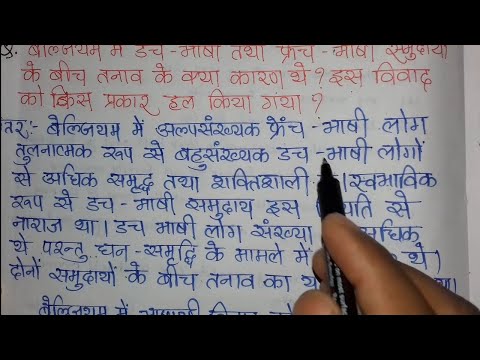 बेल्जियम में डच-भाषी तथा फ्रेंच-भाषी समुदायों
के बीच तनाव के क्या कारण थे? इस विवाद
को किस प्रकार हल किया गया?
तर:- बेल्जियम में अल्पसंख्यक फ्रेंच-भाषी लोग
तुलनात्मक रूप से बहुसंख्यक डच-भाषी लोगों
से अधिक समृद्ध तथा शक्तिशाली स्वभाविक
रूप से डच-भाषी समुदाय इस से
नाराज था। डच भाषी लोग संख्या
थे परन्तु धन-समृद्धि के मामले में थे।
दोनों समुदायों के बीच तनाव का
बेल्जियम में